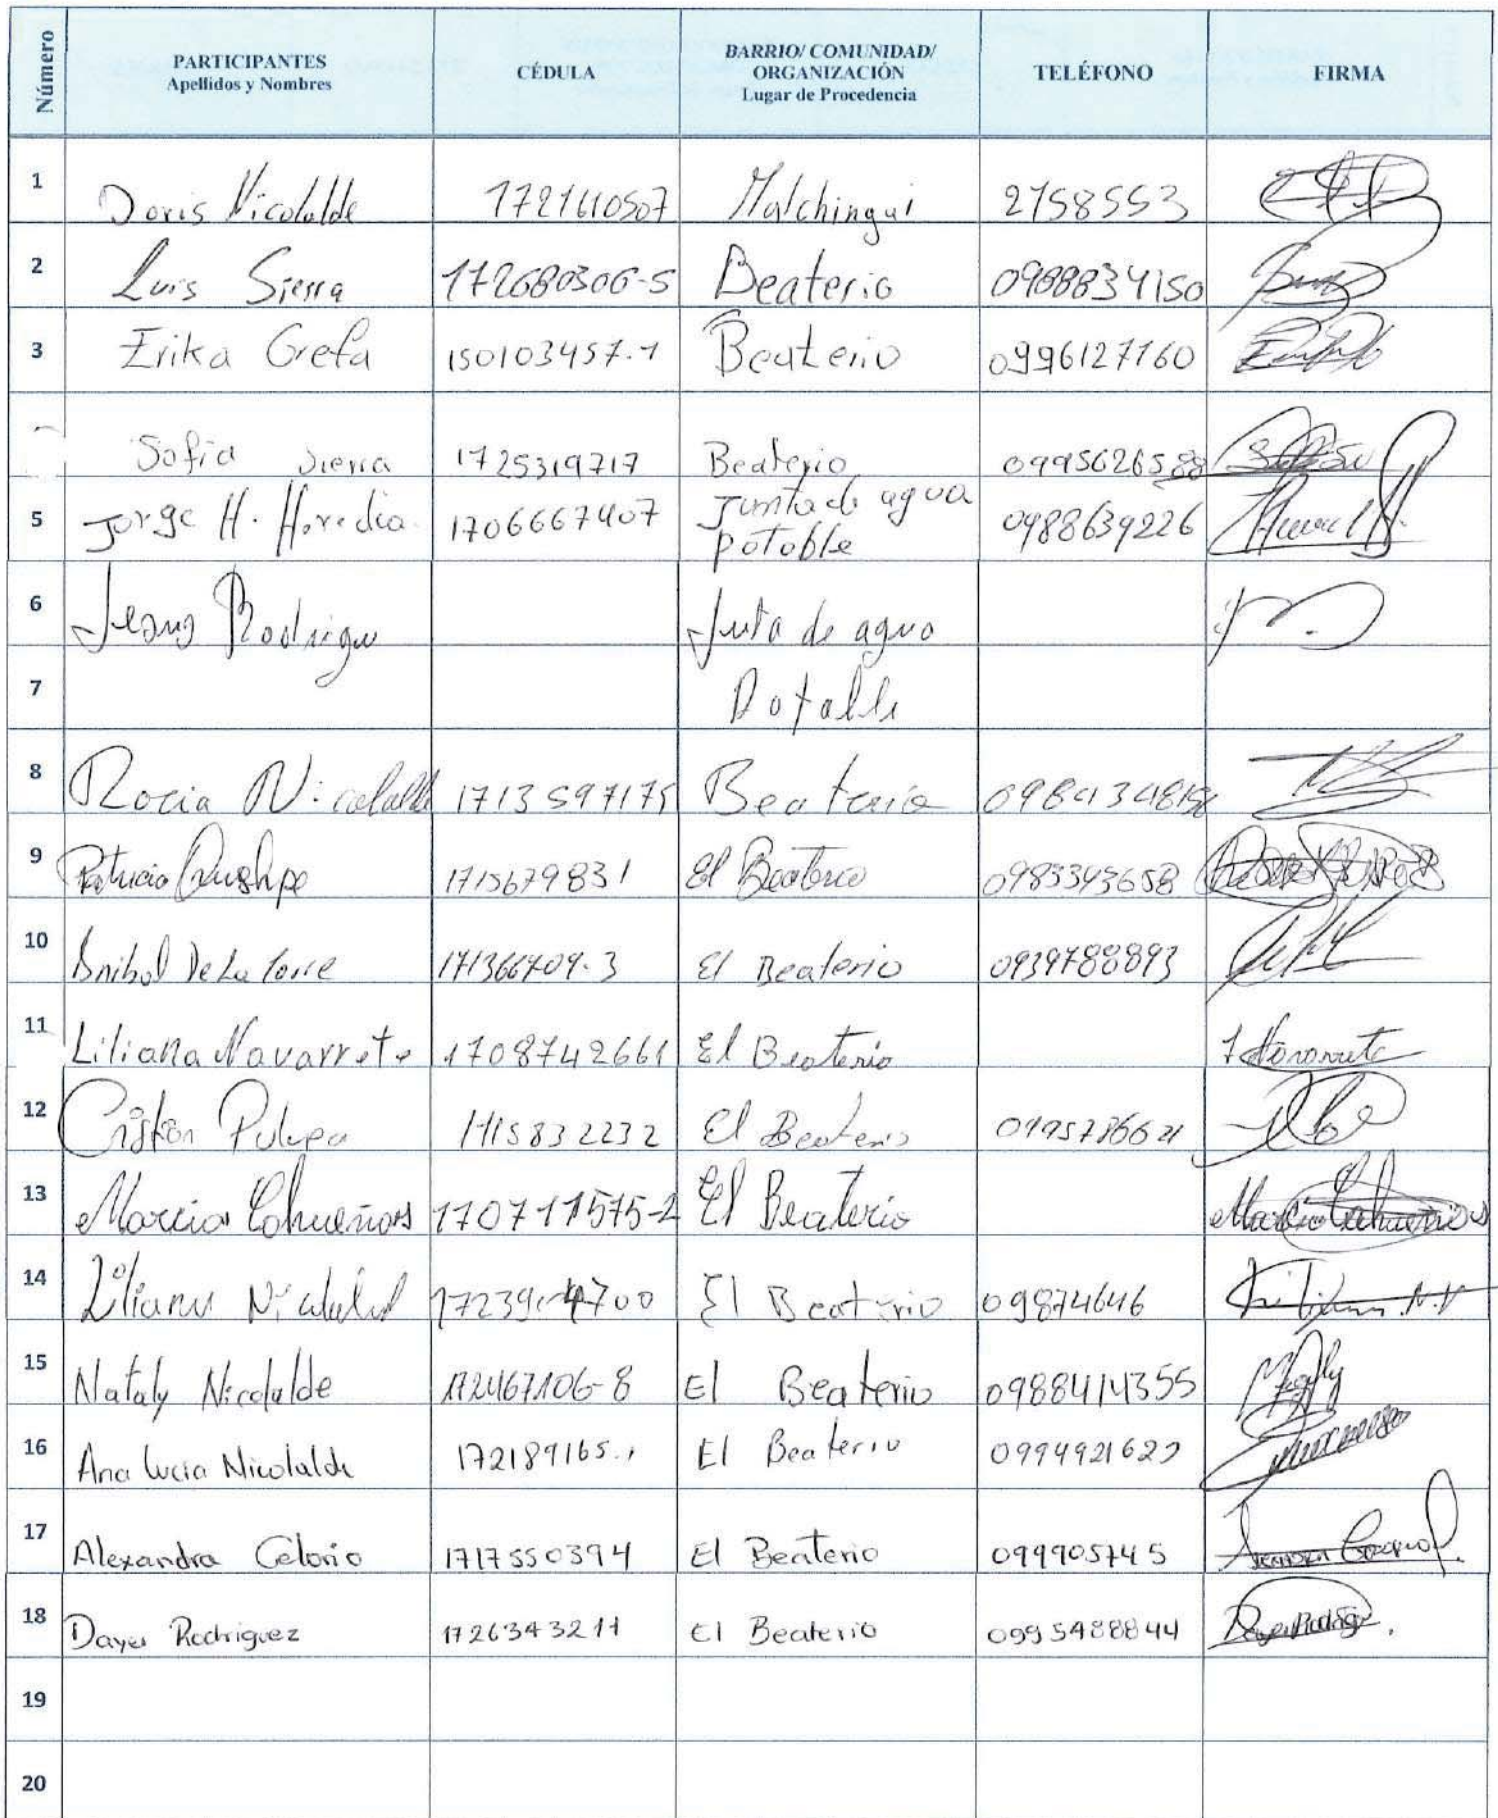 Número PARTICIPANTES CÉDULA BARRIO/ COMUNIDAD/ TELÉFONO FIRMA
Apellidos y Nombres ORGANIZACIÓN
Lugar de Procedencia
1 Doris Nicolalde 1721610507 Malchingui 2158553
2 Luis Sierra 172680306-5 Beaterio 0988834150
3 Erika Grefa 150103457-1 Beaterio 0996127160
Sofia Sierra 1725319717 Beaterio 0995626588
5 Jorge H. Heredia 1706667407 Junta de agua 0988639226
potable
6 Jesus Rodrigu Juta de agua
7 Potable
8 Rocia Nicolalde 1713597175 Beaterio
9 Patricia Quishpe 1715679831 El Beaterio 0983343658
10 Anibal De La Torre 171366709-3 El Beaterio 0939788893
11 Liliana Navarrete 1708742661 El Beaterio
12 Cristian Pulupa 1715832232 El Beaterio
13 Marcia Cahueñas 170711575-2 El Beaterio Marcia Cahueñas
14 Liliana Nicolalde El Beaterio 09874646
15 Nataly Nicolalde 172467106-8 El Beaterio 0988414355
16 Ana Lucia Nicolalde 172189165-1 El Beaterio
17 Alexandra Celorio 1717550394 El Beaterio 099905745
18 Dayer Rodriguez 1726343211 El Beaterio 0995488844
19
20